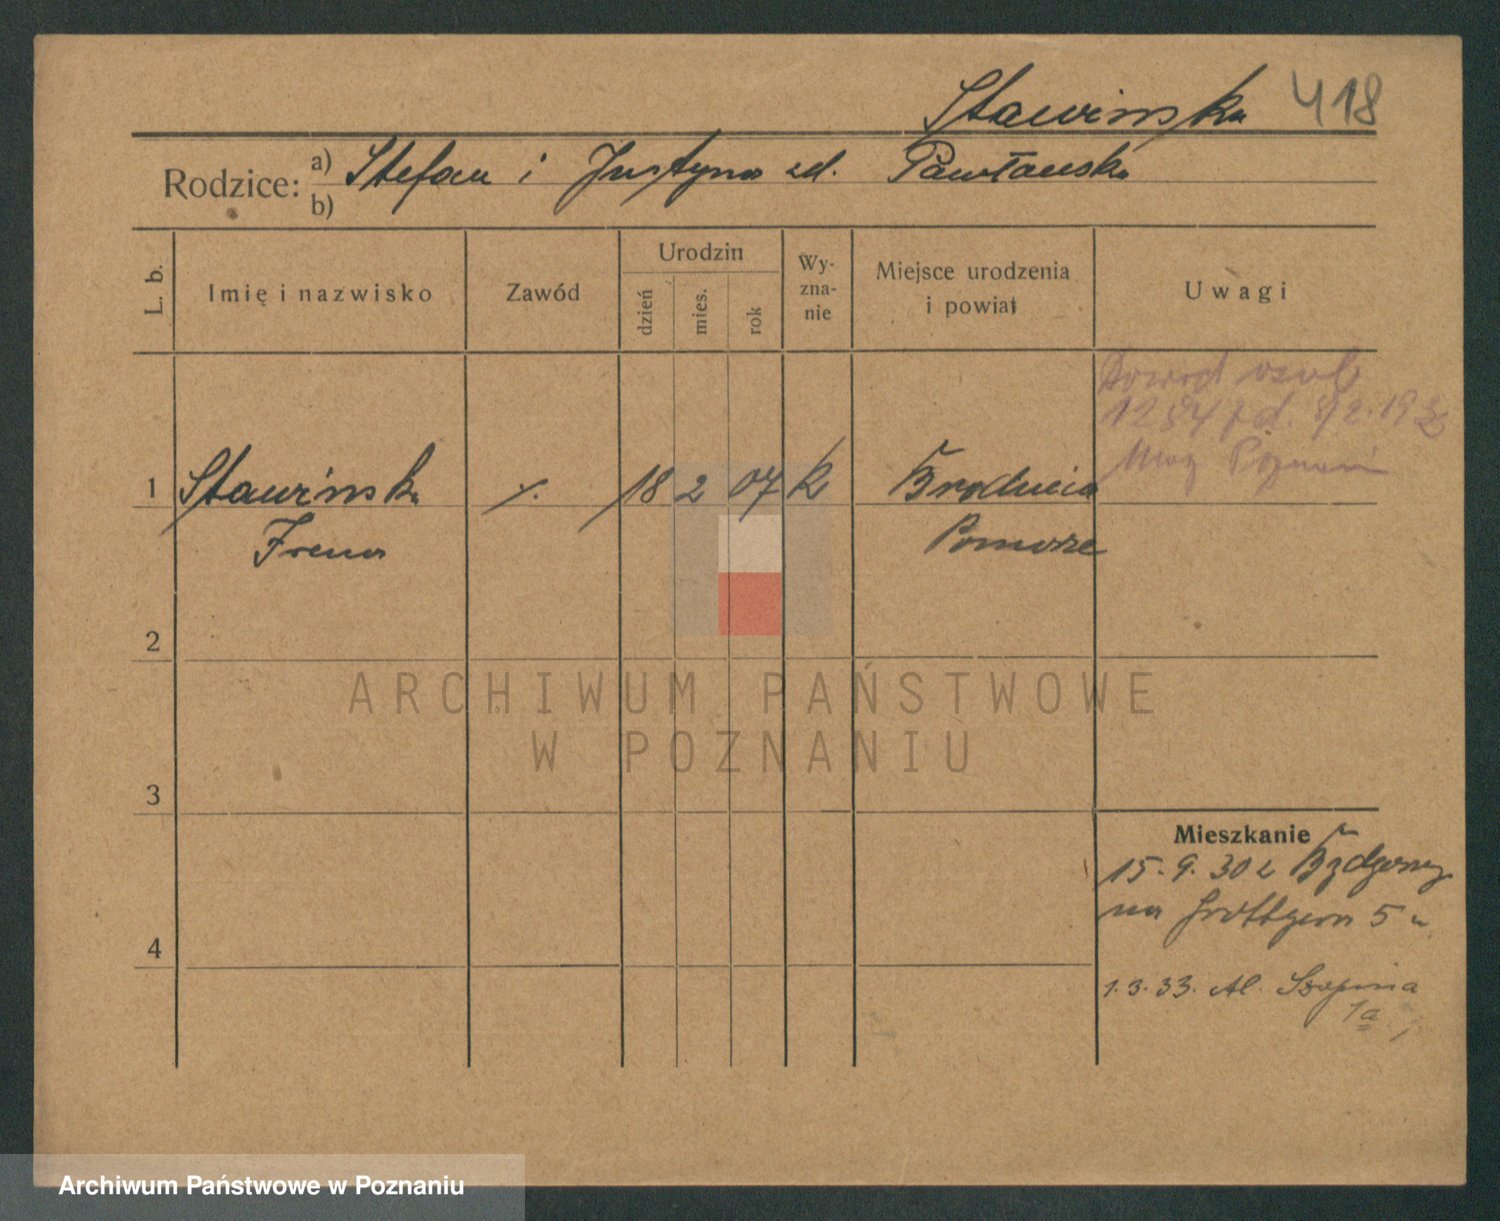 Stawińska 418
Rodzice: a) Stefan i Justyna zd. Pawłowska
b)
L. b.
Imię i nazwisko
Zawód
Urodzin
dzień
mies.
rok
Wy-
zna-
nie
Miejsce urodzenia
i powiat
Uwagi
Dowód osob
12847 d. 8/2.193
Mag Poznań
1 Stawińska ./. 18 2 07 k Brodnica
Irena Pomorze
2
3
4
Mieszkanie
15.9.30 z Bydgoszczy
na Grottgera 5
1.3.33. Al. Szopena
1a
ARCHIWUM PAŃSTWOWE
W POZNANIU
Archiwum Państwowe w Poznaniu